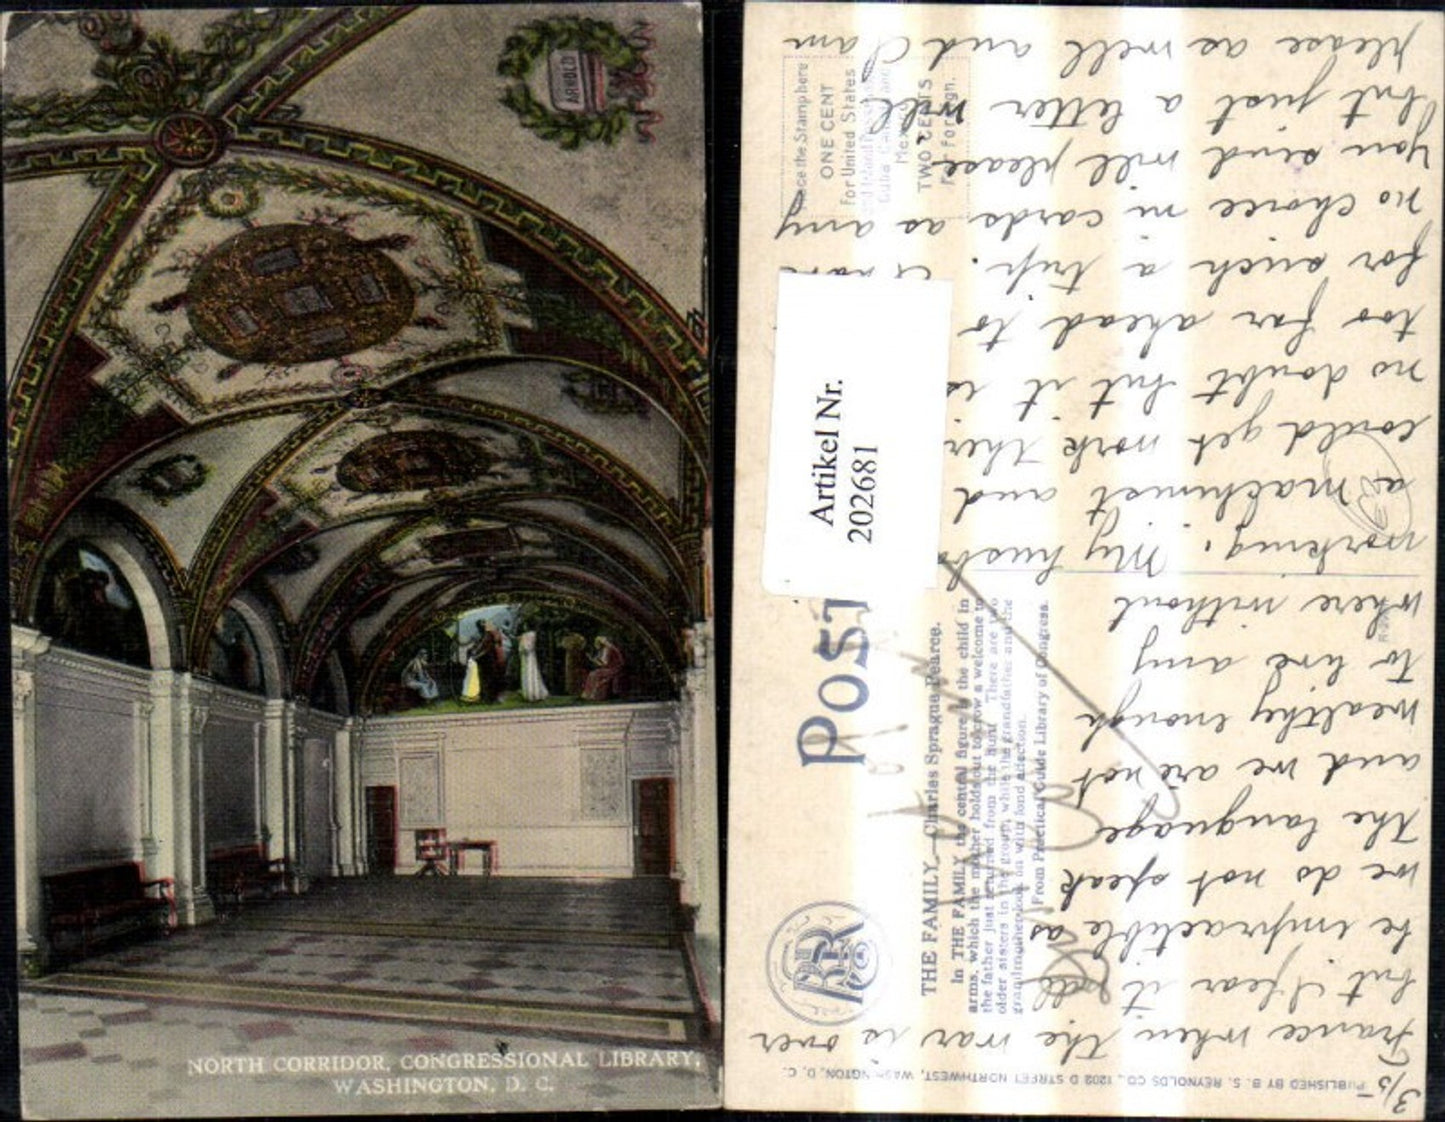 ARNOLD
NORTH CORRIDOR, CONGRESSIONAL LIBRARY,
WASHINGTON, D. C.
Place the Stamp here
ONE CENT
For United States
TWO CENTS
For Foreign.
Artikel Nr.
202681
POST
THE FAMILY.—Charles Sprague Pearce.
In THE FAMILY the central figure is the child in
arms, which the mother holds out to crow a welcome to
the father just returned from the hunt. There are two
older sisters in the group, while the grandfather and the
grandmother look on with fond affection.
From Practical Guide Library of Congress.
PUBLISHED BY B. S. REYNOLDS CO., 1202 D STREET NORTHWEST, WASHINGTON, D. C.
3/5
France when the war is over
but I fear it
be impractible as
we do not speak
the language
and we are not
wealthy enough
to live any
where without
working. My husb
a machinist and
could get work ther
no doubt but it is
too far ahead to
for such a trip.
no choice in cards as any
you send will please
but just a letter will
please as well and I am